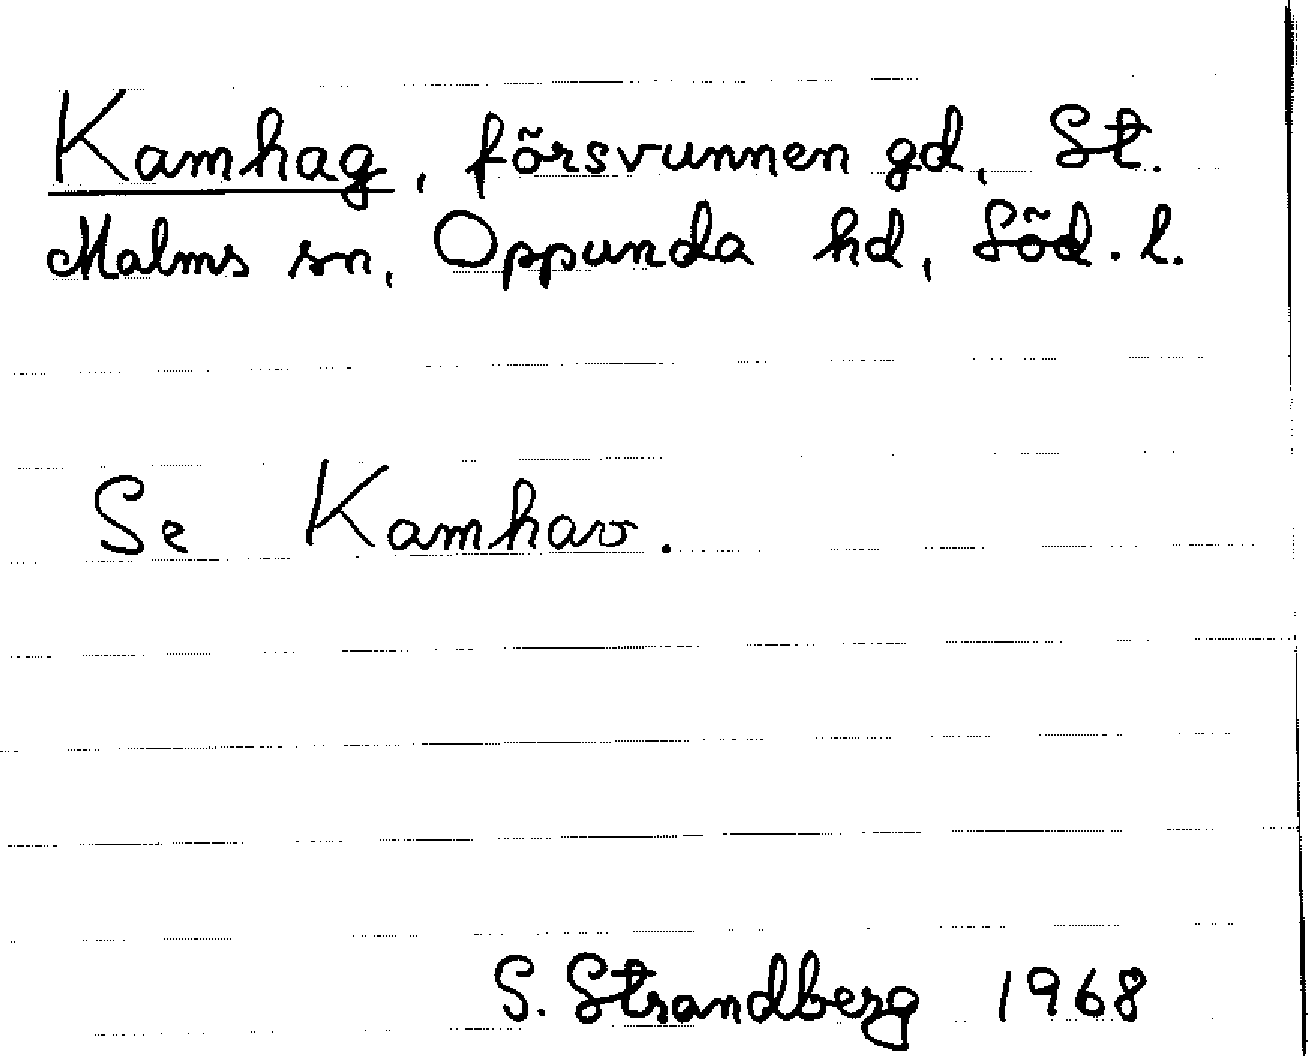 Kamhag, försvunnen gd, St.
Malms sn, Oppunda hd, Söd. l.
Se Kamhav.
S. Strandberg 1968